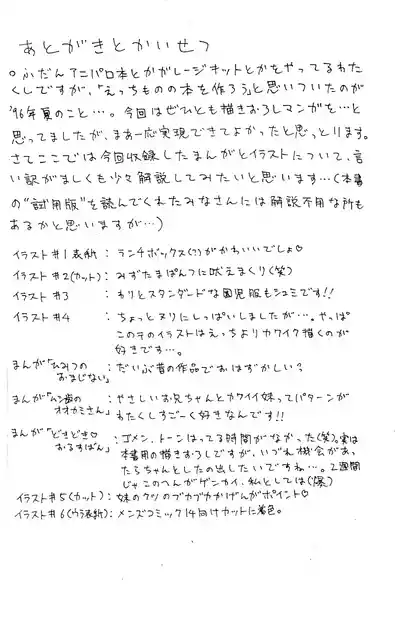 あとがきとかいせつ
○ふだんアニパロ本とかガレージキットとかをやってるわた
くしですが、「えっちものの本を作ろう」と思いついたのが
'96年夏のこと…。今回はぜひとも描きおろしマンガを…と
思ってましたが、まあ一応実現できてよかったと思っとります。
さてここでは今回収録したまんがとイラストについて、言
い訳がましくも少々解説してみたいと思います…(本書
の"試用版"を読んでくれたみなさんには解説不用な所も
あるかと思いますが…)
イラスト#1表紙:ランチボックス(?)がかわいいでしょ♡
イラスト#2(カット):みずたまぱんつに吠えまくり(笑)
イラスト#3:わりとスタンダードな園児服もシュミです!!
イラスト#4:ちょっとヌリにしっぱいしましたが…。やっぱ
このテのイラストはえっちよりカワイク描くのが
好きです…。
まんが「ひみつの
おまじない」:だいぶ昔の作品でおはずかしい?
まんが「ムシ歯の
オオカミさん」:やさしいお兄ちゃんとカワイイ妹ってパターンが
わたくしすごーく好きなんです!!
まんが「どきどき♡
おるすばん」:ゴメン、トーンはってる時間がなかった(笑)。実は
本書用の描きおろしですが、いづれ機会があっ
たらちゃんとしたの出したいですね…。2週間
じゃこのへんがゲンカイ、私としては(爆)
イラスト#5(カット):妹のクツのブカブカかげんがポイント♡
イラスト#6(ウラ表紙):メンズコミック14向けカットに着色。